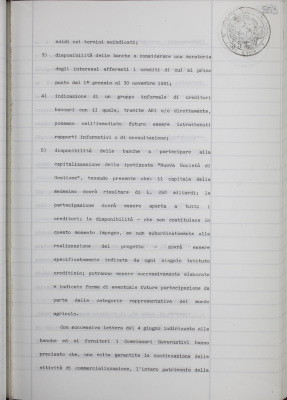 saldi nei termini suindicati;
3) disponibilità delle banche a considerare una moratoria
degli interessi afferenti i crediti di cui al primo
punto dal 1° gennaio al 30 novembre 1991;
4) indicazione di un gruppo informale di creditori
bancari con il quale, tramite ABI e/o direttamente,
possano nell'immediato futuro essere intrattenuti
rapporti informativi o di consultazione;
5) disponibilità delle banche a partecipare alla
capitalizzazione della ipotizzata "Nuova Società di
Gestione", tenendo presente che: il capitale della
medesima dovrà risultare di L. 260 miliardi; la
partecipazione dovrà essere aperta a tutti i
creditori; la disponibilità - che non costituisce in
questo momento impegno, se non subordinatamente alla
realizzazione del progetto - dovrà essere
specificatamente indicata da ogni singolo istituto
creditizio; potranno essere successivamente elaborate
e indicate forme di eventuale futura partecipazione da
parte delle categorie rappresentative del mondo
agricolo.
Con successiva lettera del 4 giugno indirizzata alle
banche ed ai fornitori i Commissari Governativi hanno
precisato che, una volta garantita la continuazione delle
attività di commercializzazione, l'intero patrimonio della